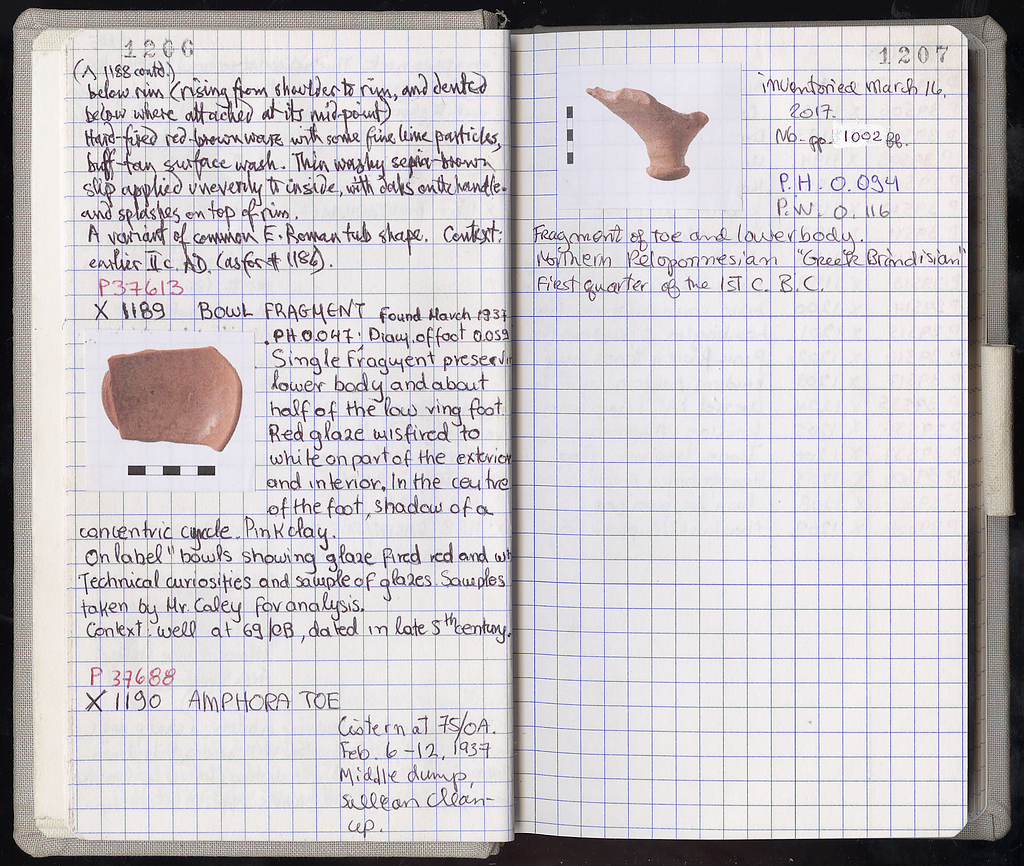 1206
(Λ 1188 contd.)
below rim (rising from shoulder to rim, and dented
below where attached at its mid-point)
Hard-fired red-brown ware with some fine lime particles,
buff-tan surface wash. Thin washy sepia-brown
slip applied unevenly to inside, with daks on the handle
and splashes on top of rim.
A variant of common E. Roman tub shape. Context:
earlier II c. AD. (as for # 1186).
P37613
X 1189 BOWL FRAGMENT Found March 1937
PH 0.047; Diam. of foot 0.059
Single fragment preservin
lower body and about
half of the low ring foot.
Red glaze misfired to
white on part of the exterior
and interior. In the centre
of the foot, shadow of a
concentric cyrcle. Pink clay.
On label "bowls showing glaze fired red and wh
Technical curiosities and sample of glazes. Samples
taken by Mr. Caley for analysis.
Context: well at 69/ΟΒ, dated in late 5th century.
P 37688
X 1190 AMPHORA TOE
Cistern at 75/ΟΑ.
Feb. 6-12, 1937
Middle dump,
sullean clean-
up.
1207
inventoried March 16,
2017.
Nb. pp. 1002 ff.
P.H. 0.094
P.W. 0.116
Fragment of toe and lower body.
Northern Peloponnesian "Greek Brindisian"
First quarter of the 1ST C. B.C.